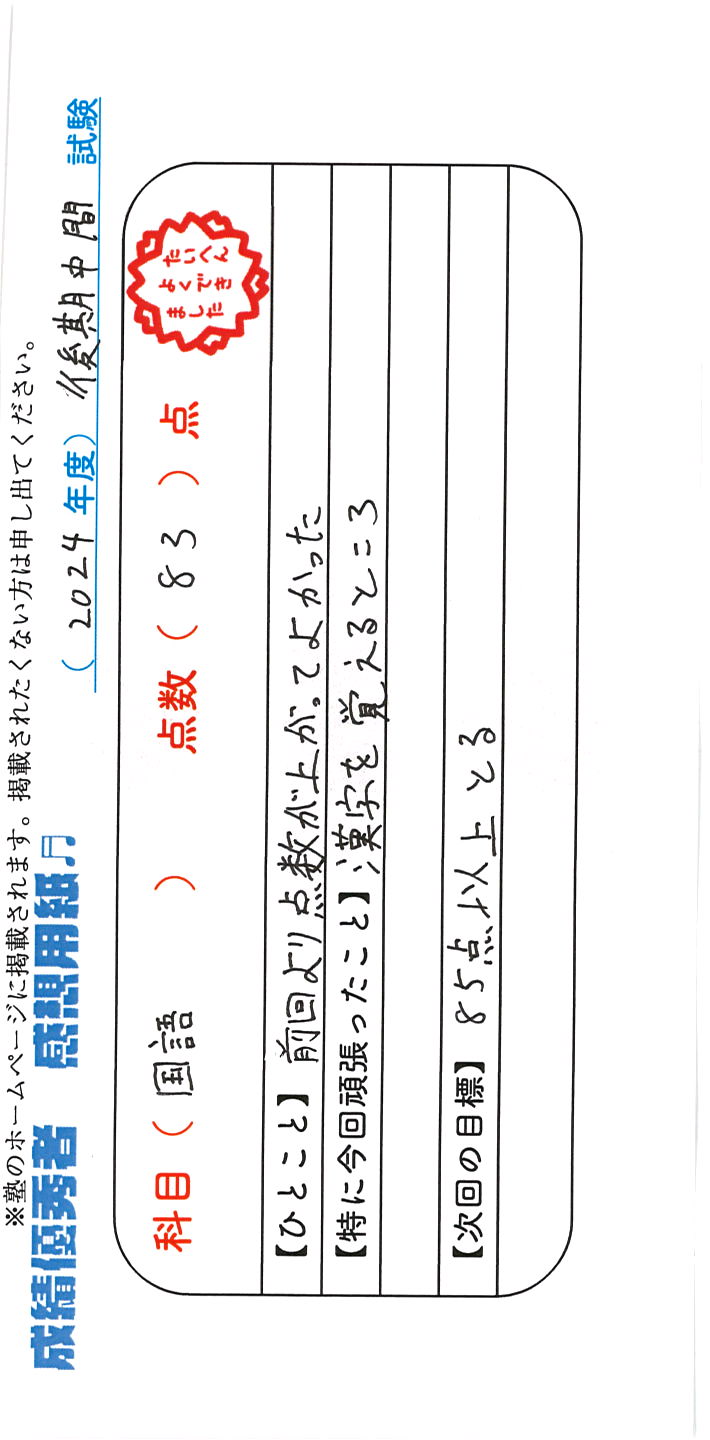 ※塾のホームページに掲載されます。掲載されたくない方は申し出てください。
成績優秀者 感想用紙♬ (2024年度)後期中間 試験
科目(国語) 点数(83)点
たいへん
よくでき
ました
【ひとこと】前回より点数が上がってよかった
【特に今回頑張ったこと】漢字を覚えるところ
【次回の目標】85点以上とる